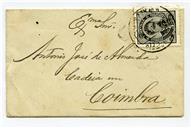 Exmo Snr.
Antonio José de Almeida
Cadeia em
Coimbra